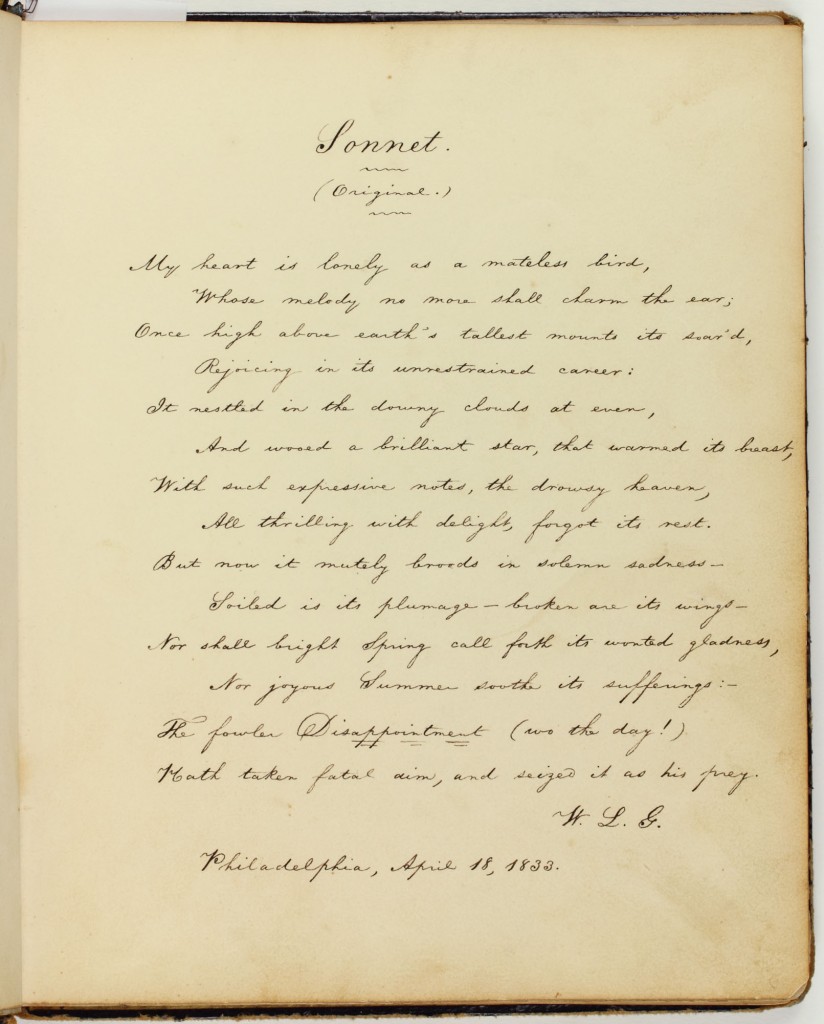 Sonnet.
(Original.)
My heart is lonely as a mateless bird,
Whose melody no more shall charm the ear;
Once high above earth's tallest mounts its soar'd,
Rejoicing in its unrestrained career:
It nestled in the downy clouds at even,
And wooed a brilliant star, that warmed its breast,
With such expressive notes, the drowsy heaven,
All thrilling with delight, forgot its rest.
But now it mutely broods in solemn sadness—
Soiled is its plumage — broken are its wings—
Nor shall bright Spring call forth its wonted gladness,
Nor joyous Summer soothe its sufferings:—
The fowler Disappointment (wo the day!)
Hath taken fatal aim, and seized it as his prey.
W. L. G.
Philadelphia, April 18, 1833.